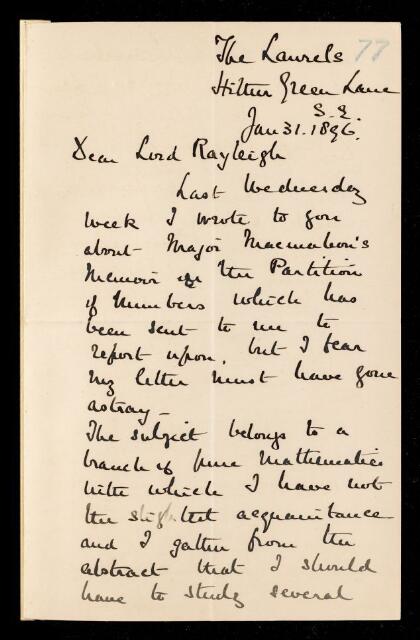 The Laurels 77
Hither Green Lane
S.E.
Jan 31. 1896.
Dear Lord Rayleigh
Last Wednesday
week I wrote to you
about Major Macmahon's
Memoir on the Partition
of Numbers which has
been sent to me to
report upon, but I fear
my letter must have gone
astray—
The subject belongs to a
branch of pure Mathematics
with which I have not
the slightest acquaintance
and I gather from the
abstract that I should
have to study several